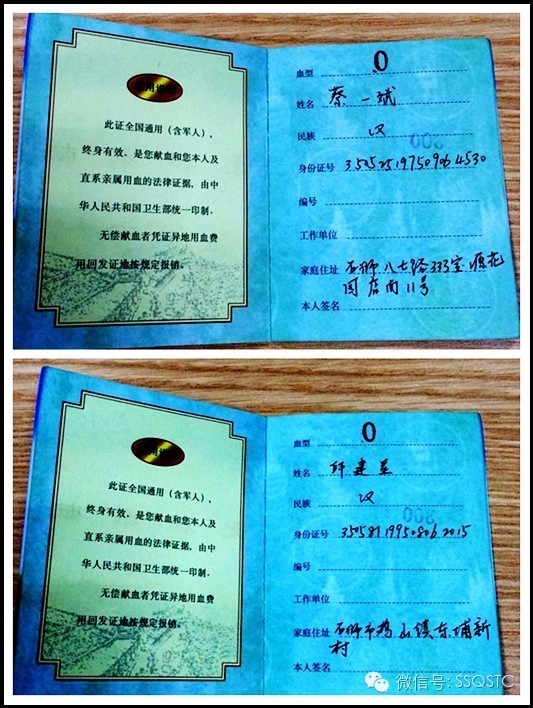 此证全国通用（含军人），
终身有效，是您献血和您本人及
直系亲属用血的法律证据，由中
华人民共和国卫生部统一印制。
无偿献血者凭证异地用血费
用回发证地按规定报销。
血型 O
姓名 蔡一斌
民族 汉
身份证号 350525197509064530
编号
工作单位
家庭住址 石狮八七路333宝源花
园店面11号
本人签名
此证全国通用（含军人），
终身有效，是您献血和您本人及
直系亲属用血的法律证据，由中
华人民共和国卫生部统一印制。
无偿献血者凭证异地用血费
用回发证地按规定报销。
血型 O
姓名
民族 汉
身份证号 350581199508062015
编号
工作单位
家庭住址 石狮市鸿山镇东埔新
村
本人签名
微信号: SSQSTC